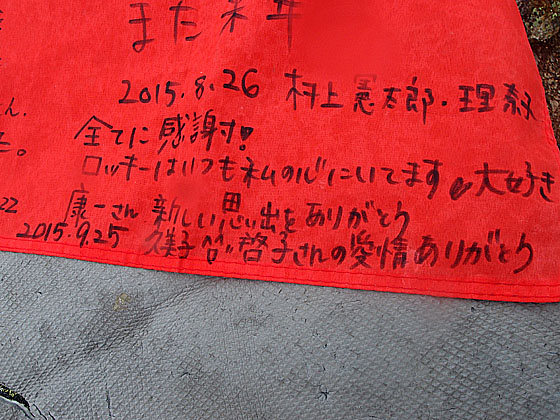 また来年
2015.8.26 村上憲太郎・理奈
ん.
全てに感謝!
た。
ロッキーはいつも私の心にいてます 大好き
22
康一さん 新しい思い出をありがとう
2015.9.25 久美子 啓子さんの愛情ありがとう